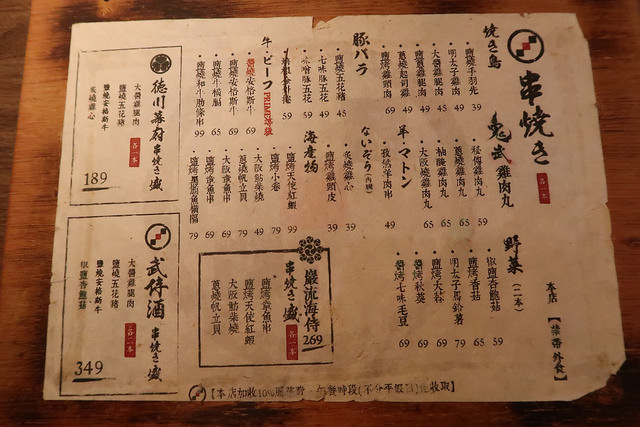 串焼き
各一本
焼き鳥
鹽烤手羽先 39
明太子雞肉 49
大醬雞腿肉 45
鹽蔥雞腿肉 49
蔥燒起司雞 49
鹽烤雞頸肉 69
豚バラ
鹽燒五花豬 45
七味豚五花 49
味噌豚五花 59
59
牛・ビーフ PRIME等級
醬燒安恰斯牛 69
鹽燒安恰斯牛 69
鹽燒牛橫膈 65
鹽燒和牛肋條串 99
鬼武雞肉丸
秘傳雞肉丸 59
蔥燒雞肉丸 65
柚醃雞肉丸 65
大阪燒雞肉丸 65
羊・マトン
孜然羊肉串 49
ないぞう(內臟)
炙燒雞心 39
鹽烤雞頸皮 39
海産物
鹽烤天使紅蝦 99
鹽烤小卷 79
大阪魷柴燒 49
蔥燒帆立貝 79
大阪章魚串 69
鹽烤章魚串 69
79
野菜(二本)
椒鹽杏鮑菇 59
鹽烤香菇 65
明太子馬鈴薯 79
鹽烤大蒜 69
醬烤秋葵 69
醬烤七味毛豆 69
本店【禁帶外食】
巖流海侍
串焼き盛
269
各一本
鹽烤章魚串
鹽烤天使紅蝦
大阪魷柴燒
蔥燒帆立貝
徳川幕府
串焼き盛
各一本
大醬雞腿肉
鹽燒五花豬
鹽燒安格斯牛
炙燒雞心
189
武侍酒
串焼き盛
各一本
大醬雞腿肉
鹽燒五花豬
鹽燒安格斯牛
椒鹽杏鮑菇
349
【本店加收10%服務費,午餐時段(不分平假日)免收取】